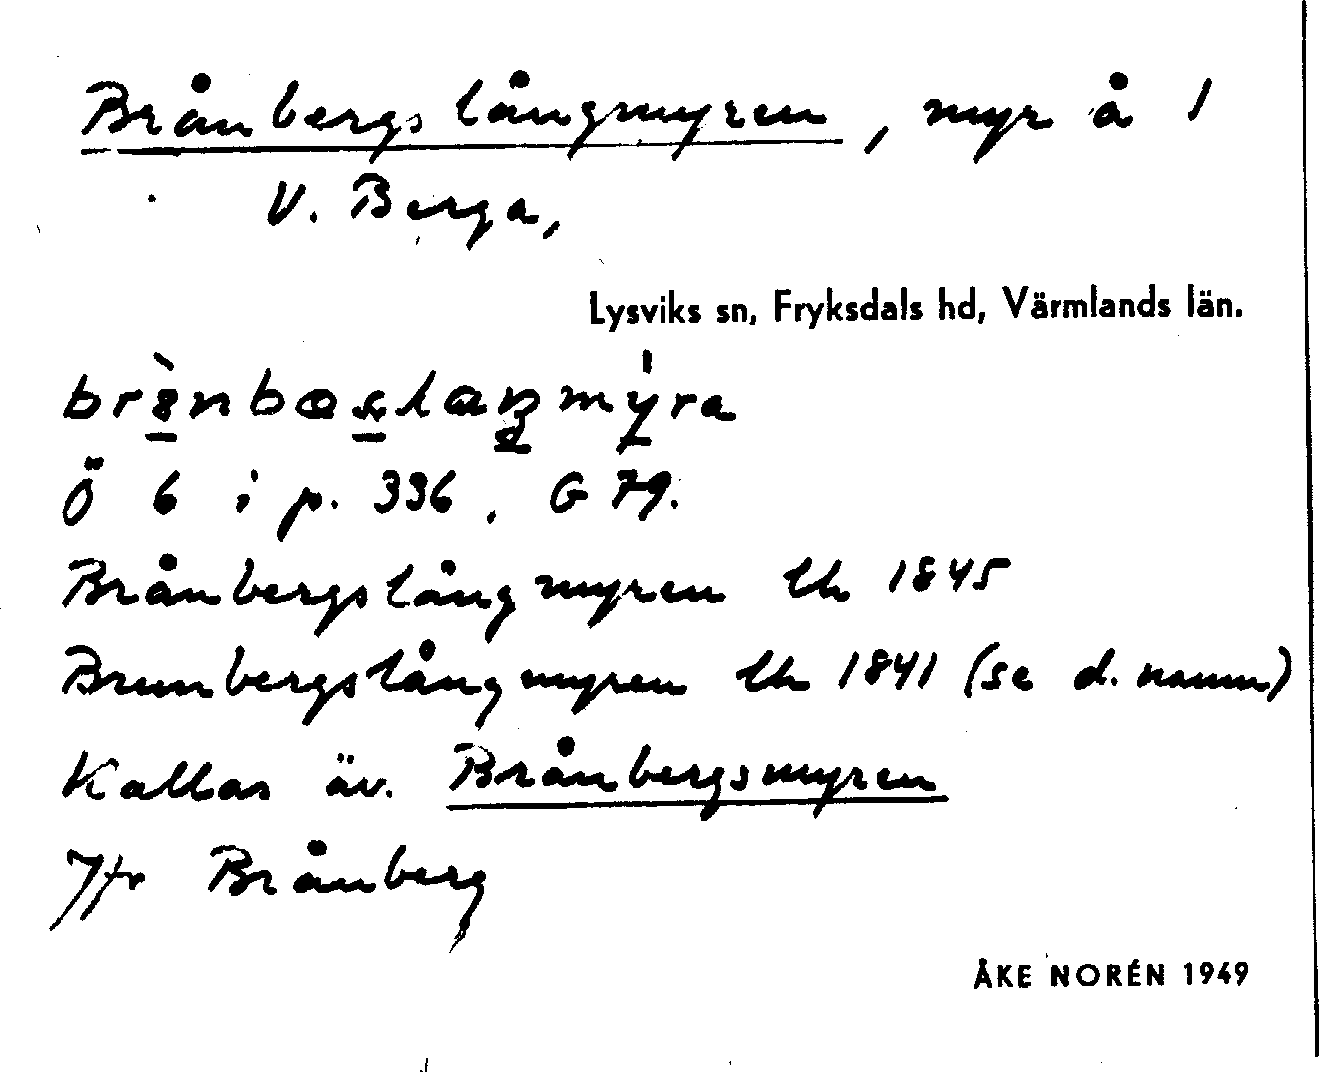 Brånbergslångmyren, myr å 1
V. Berga,
Lysviks sn, Fryksdals hd, Värmlands län.
Ö 6 i p. 336, G 79.
Brånbergslångmyren lh 1845
Brunbergslångmyren lh 1841 (se d. namn)
Kallas äv. Brånbergsmyren
Jfr Brånberg
ÅKE NORÉN 1949